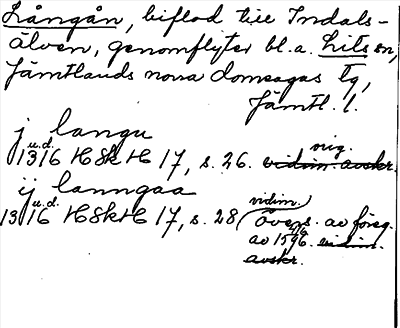 Långån, biflod till Indals-
älven, genomflyter bl.a. Lits sn,
Jämtlands norra domsagas tg,
Jämtl. l.
j langu
u.d. orig.
1316 HSkH 17, s. 26. vidim. avskr.
ij lanngaa
u.d. vidim.
1316 HSkH 17, s. 28 (övers. av föreg.
av 1596. vidim.
avskr.